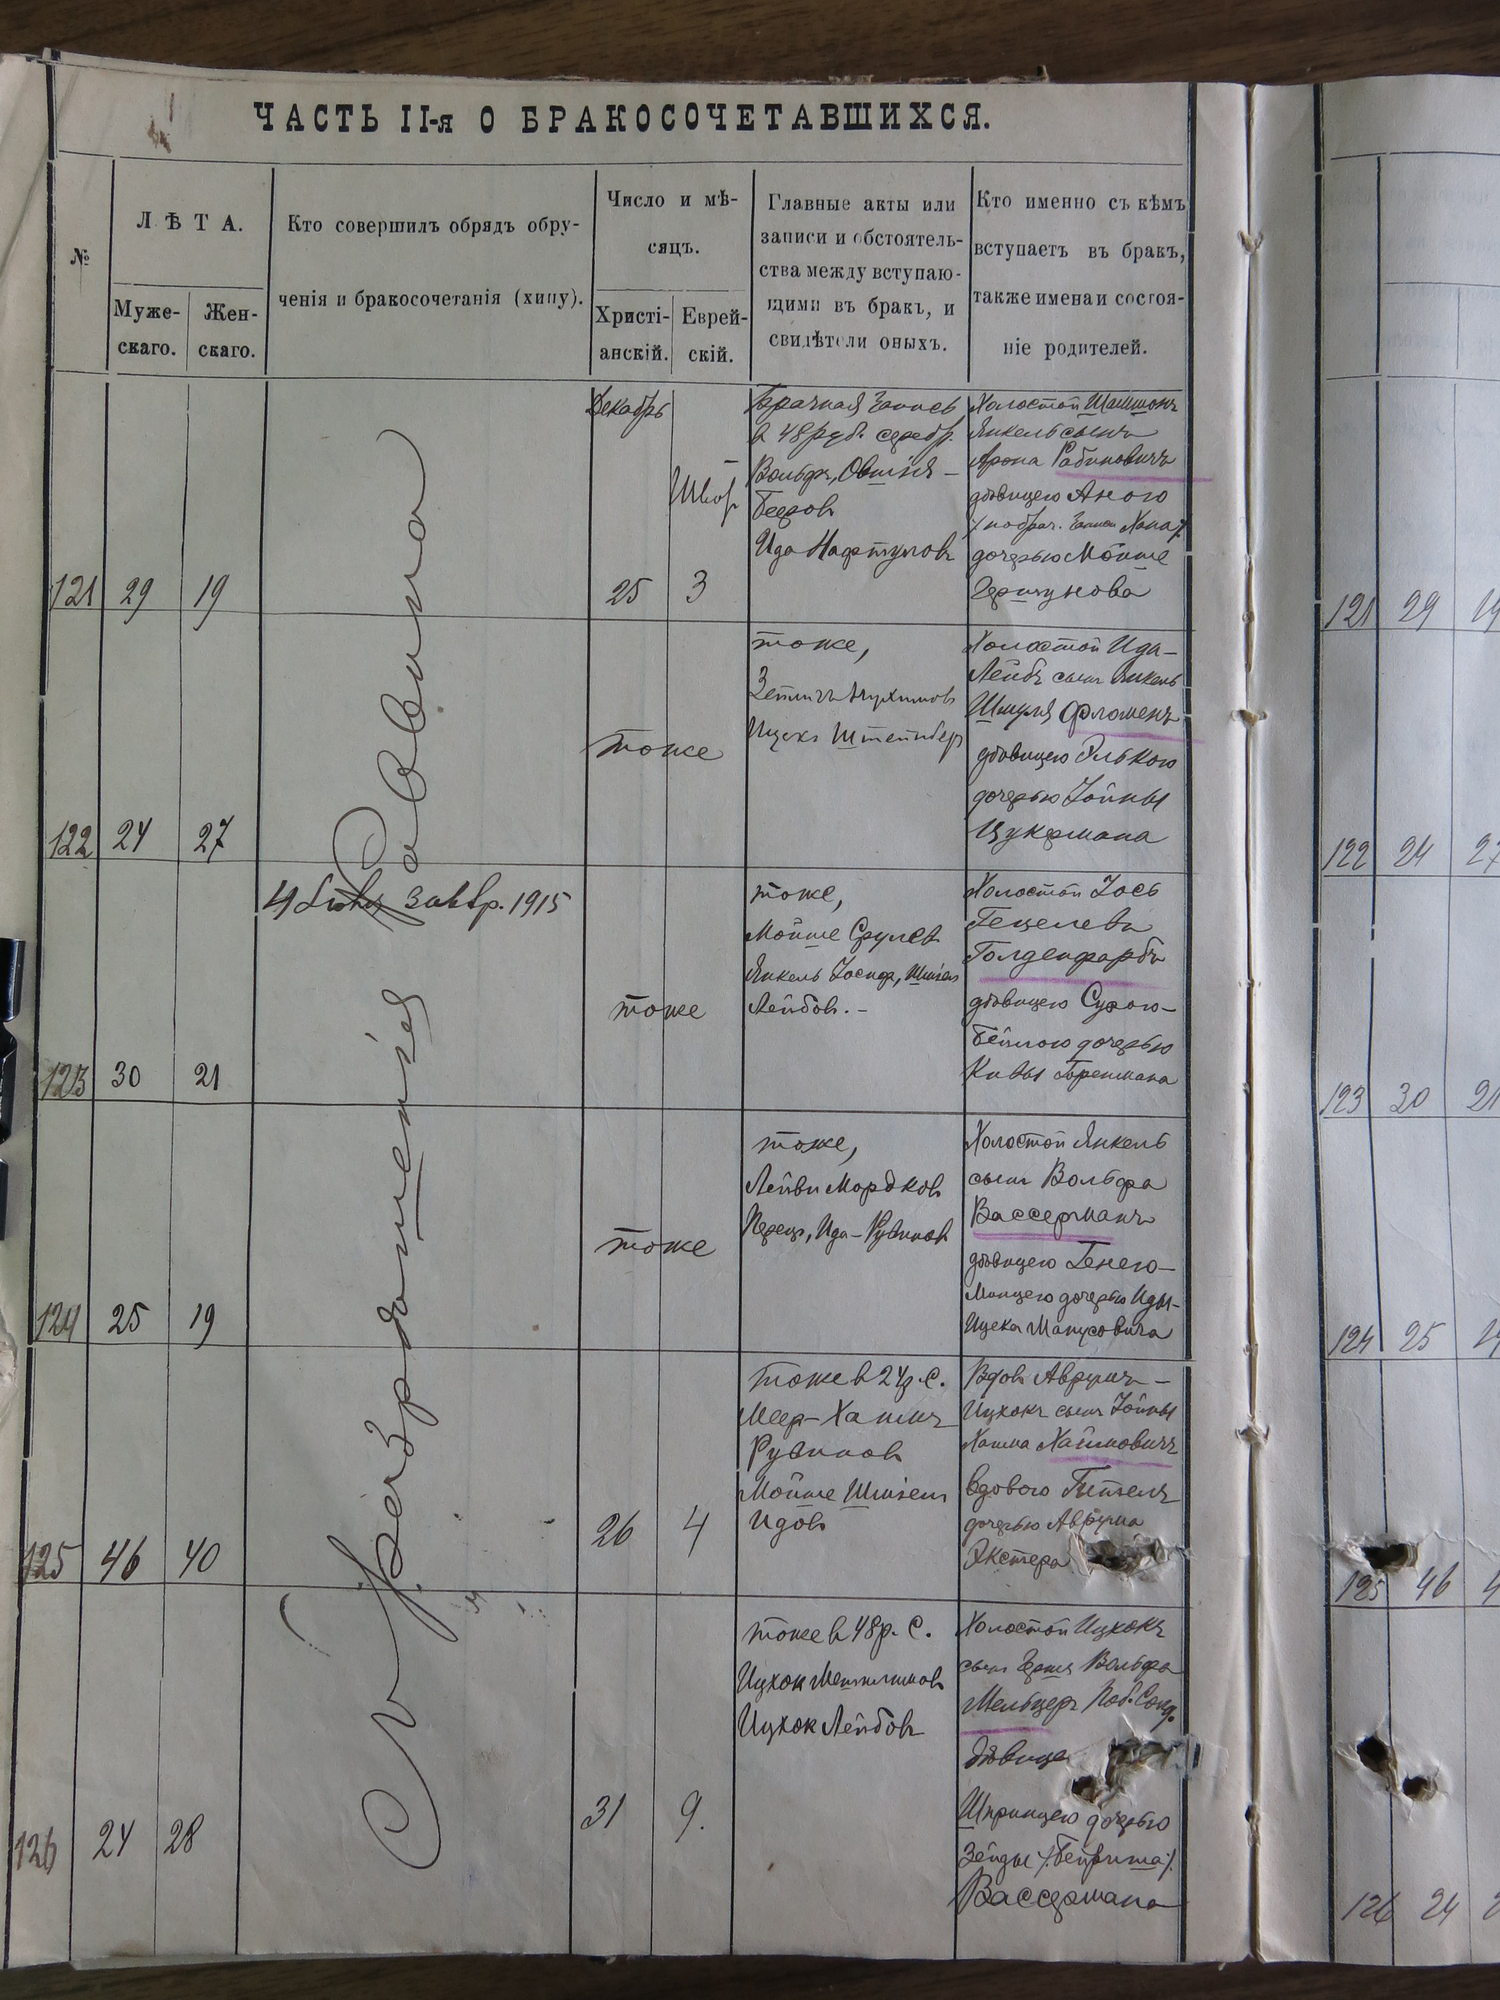 ЧАСТЬ II-я О БРАКОСОЧЕТАВШИХСЯ.
№
ЛѢТА.
Муже-
скаго.
Жен-
скаго.
Кто совершилъ обрядъ обру-
ченія и бракосочетанія (хипу).
Число и мѣ-
сяцъ.
Христі-
анскій.
Еврей-
скій.
Главные акты или
записи и обстоятель-
ства между вступаю-
щими въ бракъ, и
свидѣтели оныхъ.
Кто именно съ кѣмъ
вступаетъ въ бракъ,
также имена и состоя-
ніе родителей.
121
29
19
Декабрь
25
3
Брачная Запись
в 48 руб. серебр.
Вольфъ, Овшія-
Бееров
Ида Нафтулов
Холостой Шамшонъ
Янкель сынъ
Арона Рабиновичъ
дѣвицею Аною
дочерью Мойше
Гершунова
122
24
27
тоже
тоже,
Холостой Ида-
Лейбъ сынъ Янкель
Шмуля Фломенъ
дѣвицею Элькою
дочерью Іойны
Цукермана
123
30
21
завѣр. 1915
тоже
тоже,
Мойше Срулев
Янкель Іосифъ,
Лейбов.-
Холостой Іось
Гецелевъ
Голденфарбъ
дѣвицею Сурою-
Бейлою дочерью
Кивы
124
25
19
тоже
тоже,
Лейви Мордков
Перец, Ида-Рувинов
Холостой Янкель
сынъ Вольфа
Вассерманъ
дѣвицею Генею-
Минцею дочерью Иды-
Ицека
125
46
40
26
4
тоже в 24 р. С.
Меер-Хаимъ
Рувинов
Мойше
Идов
Вдов Аврумъ-
Ицхокъ сынъ Іойны
Хаима Хаимовичъ
вдовою Гителъ
дочерью Аврума
Экстера
126
24
28
31
9.
тоже в 48 р. С.
Ицхок
Ицхок Лейбов
Холостой Ицхокъ
сынъ Герша Вольфа
Мельцеръ
дѣвице
Шпринцею дочерью
Зейды
Вассермана
121
29
122
24
27
123
30
21
124
25
125
46
126
24